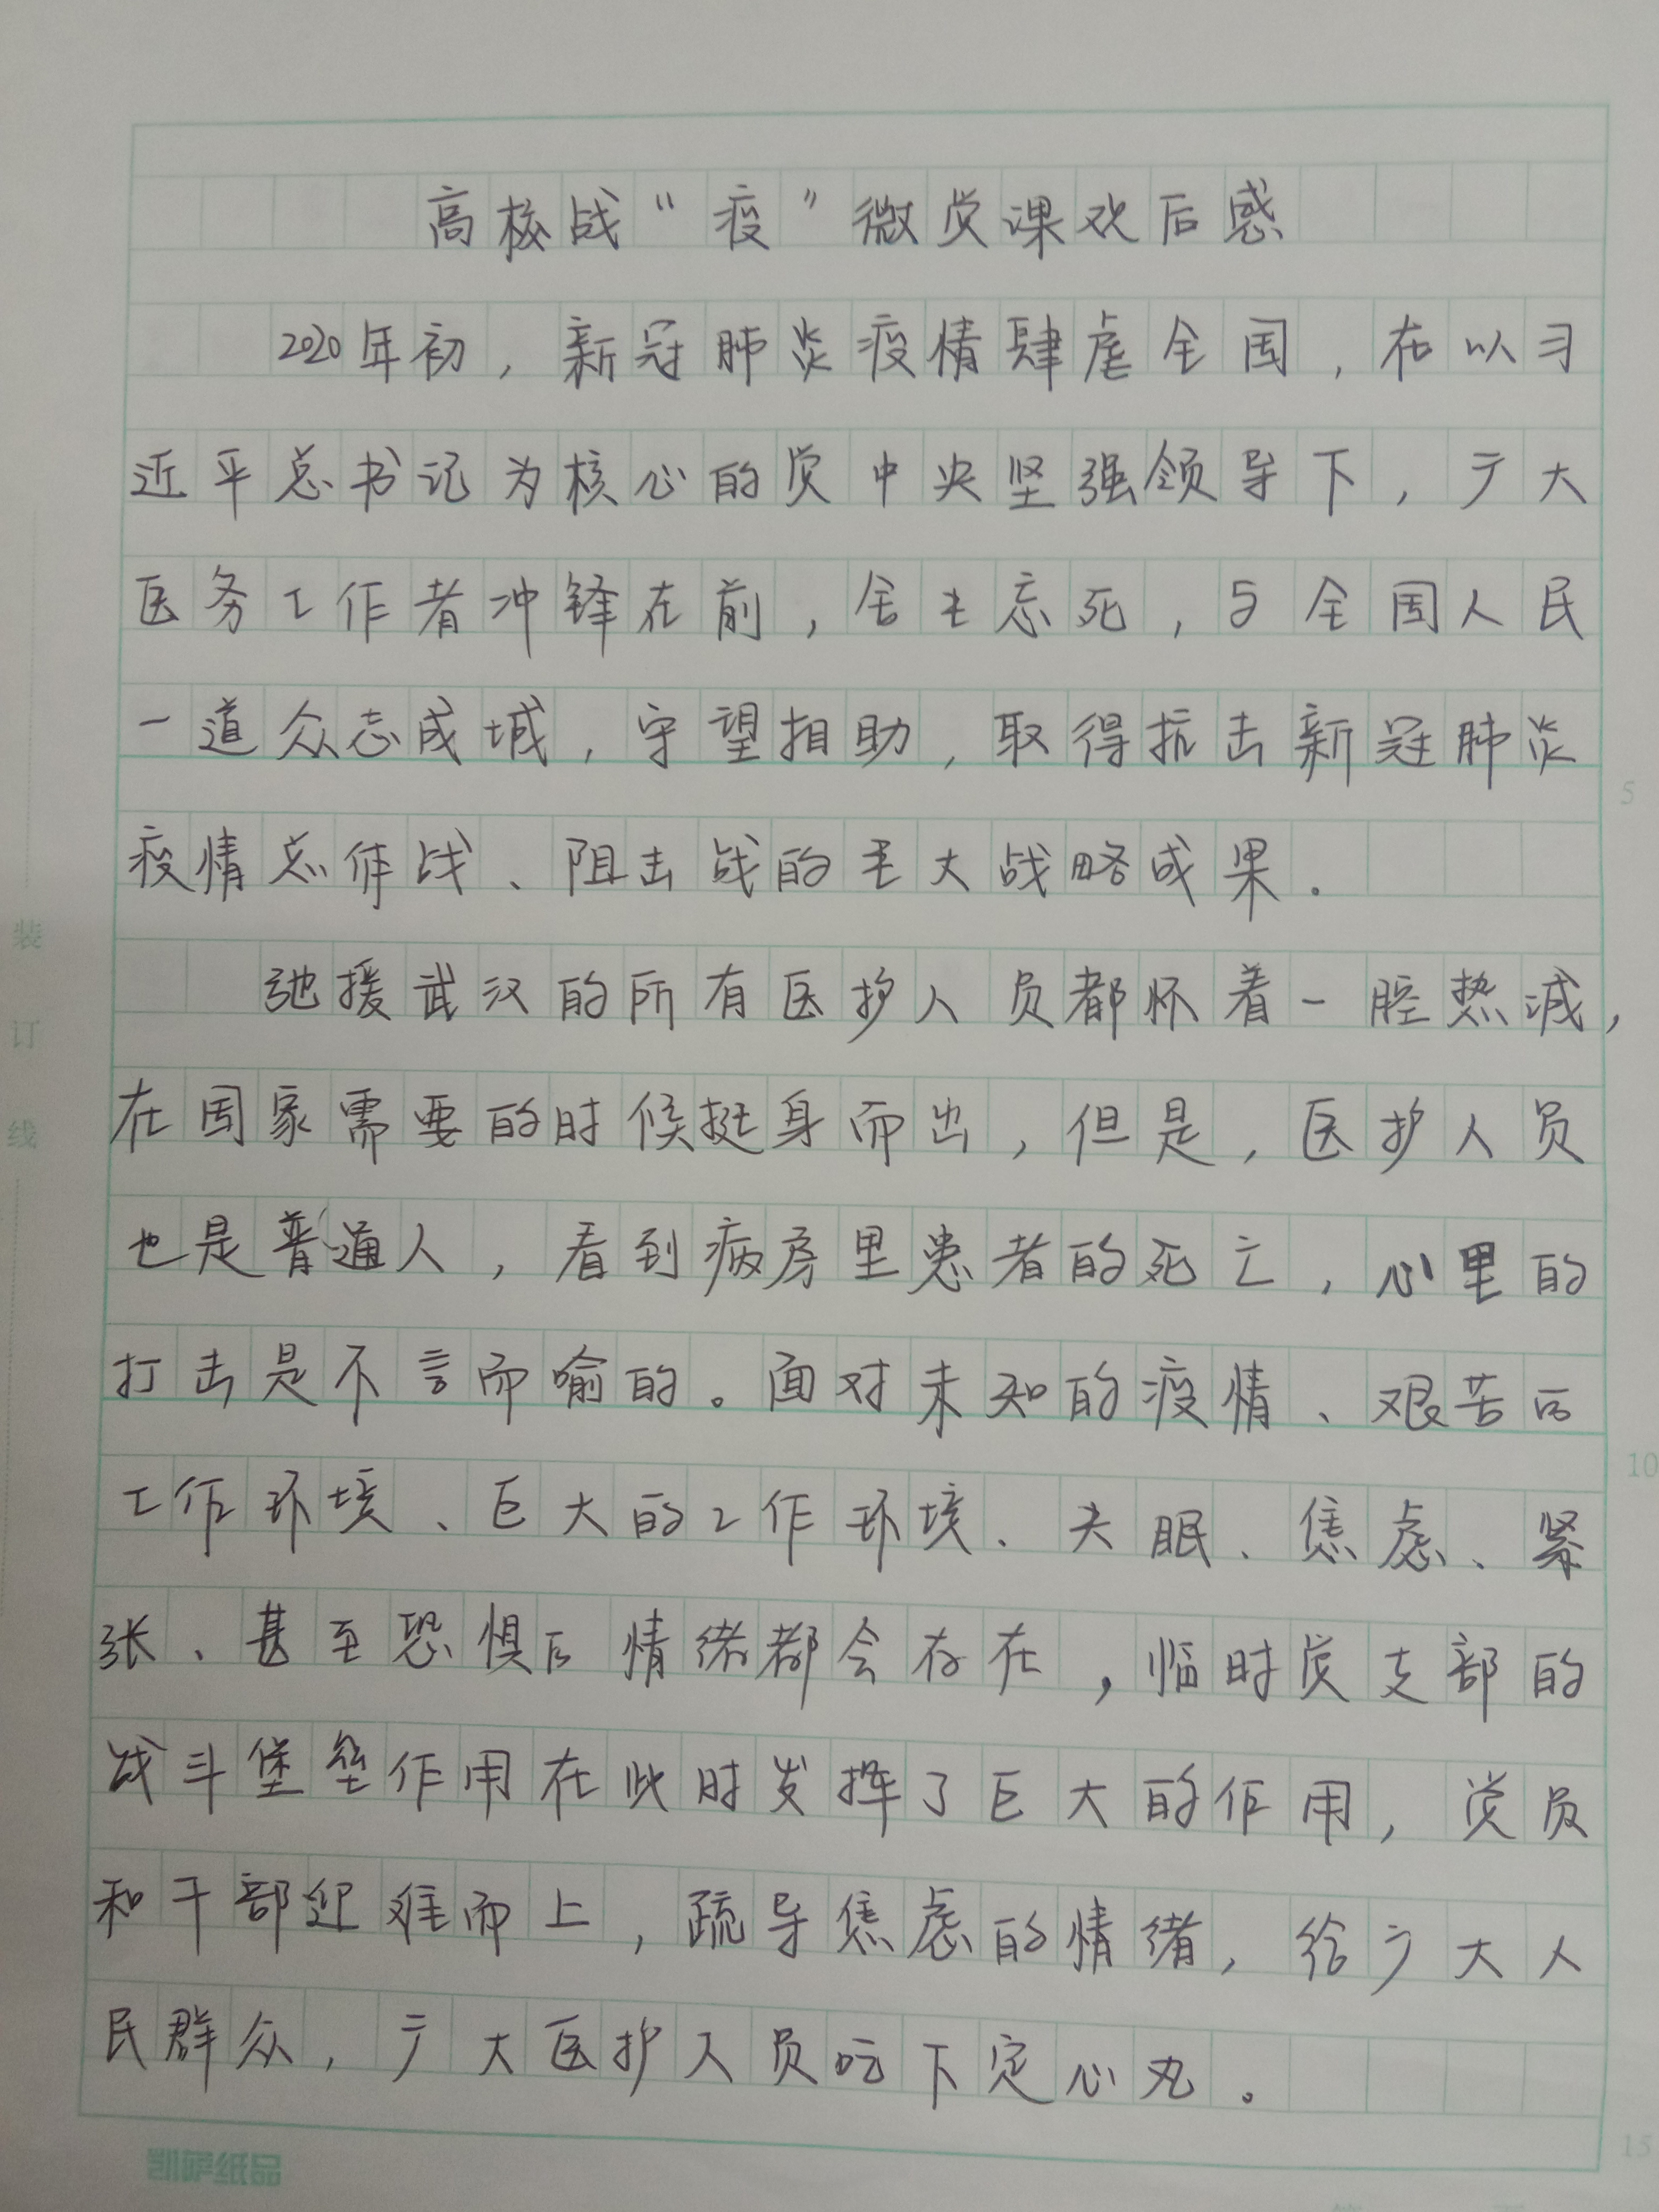 高校战“疫”微党课观后感
2020年初，新冠肺炎疫情肆虐全国，在以习
近平总书记为核心的党中央坚强领导下，广大
医务工作者冲锋在前，舍生忘死，与全国人民
一道众志成城，守望相助，取得抗击新冠肺炎
疫情总体战、阻击战的重大战略成果.
驰援武汉的所有医护人员都怀着一腔热诚，
在国家需要的时候挺身而出，但是，医护人员
也是普通人，看到病房里患者的死亡，心里的
打击是不言而喻的。面对未知的疫情、艰苦的
工作环境、巨大的工作环境、失眠、焦虑、紧
张、甚至恐惧的情绪都会存在，临时党支部的
战斗堡垒作用在此时发挥了巨大的作用，党员
和干部迎难而上，疏导焦虑的情绪，给广大人
民群众，广大医护人员吃下定心丸。
装
订
线
5
10
15
凯萨纸品